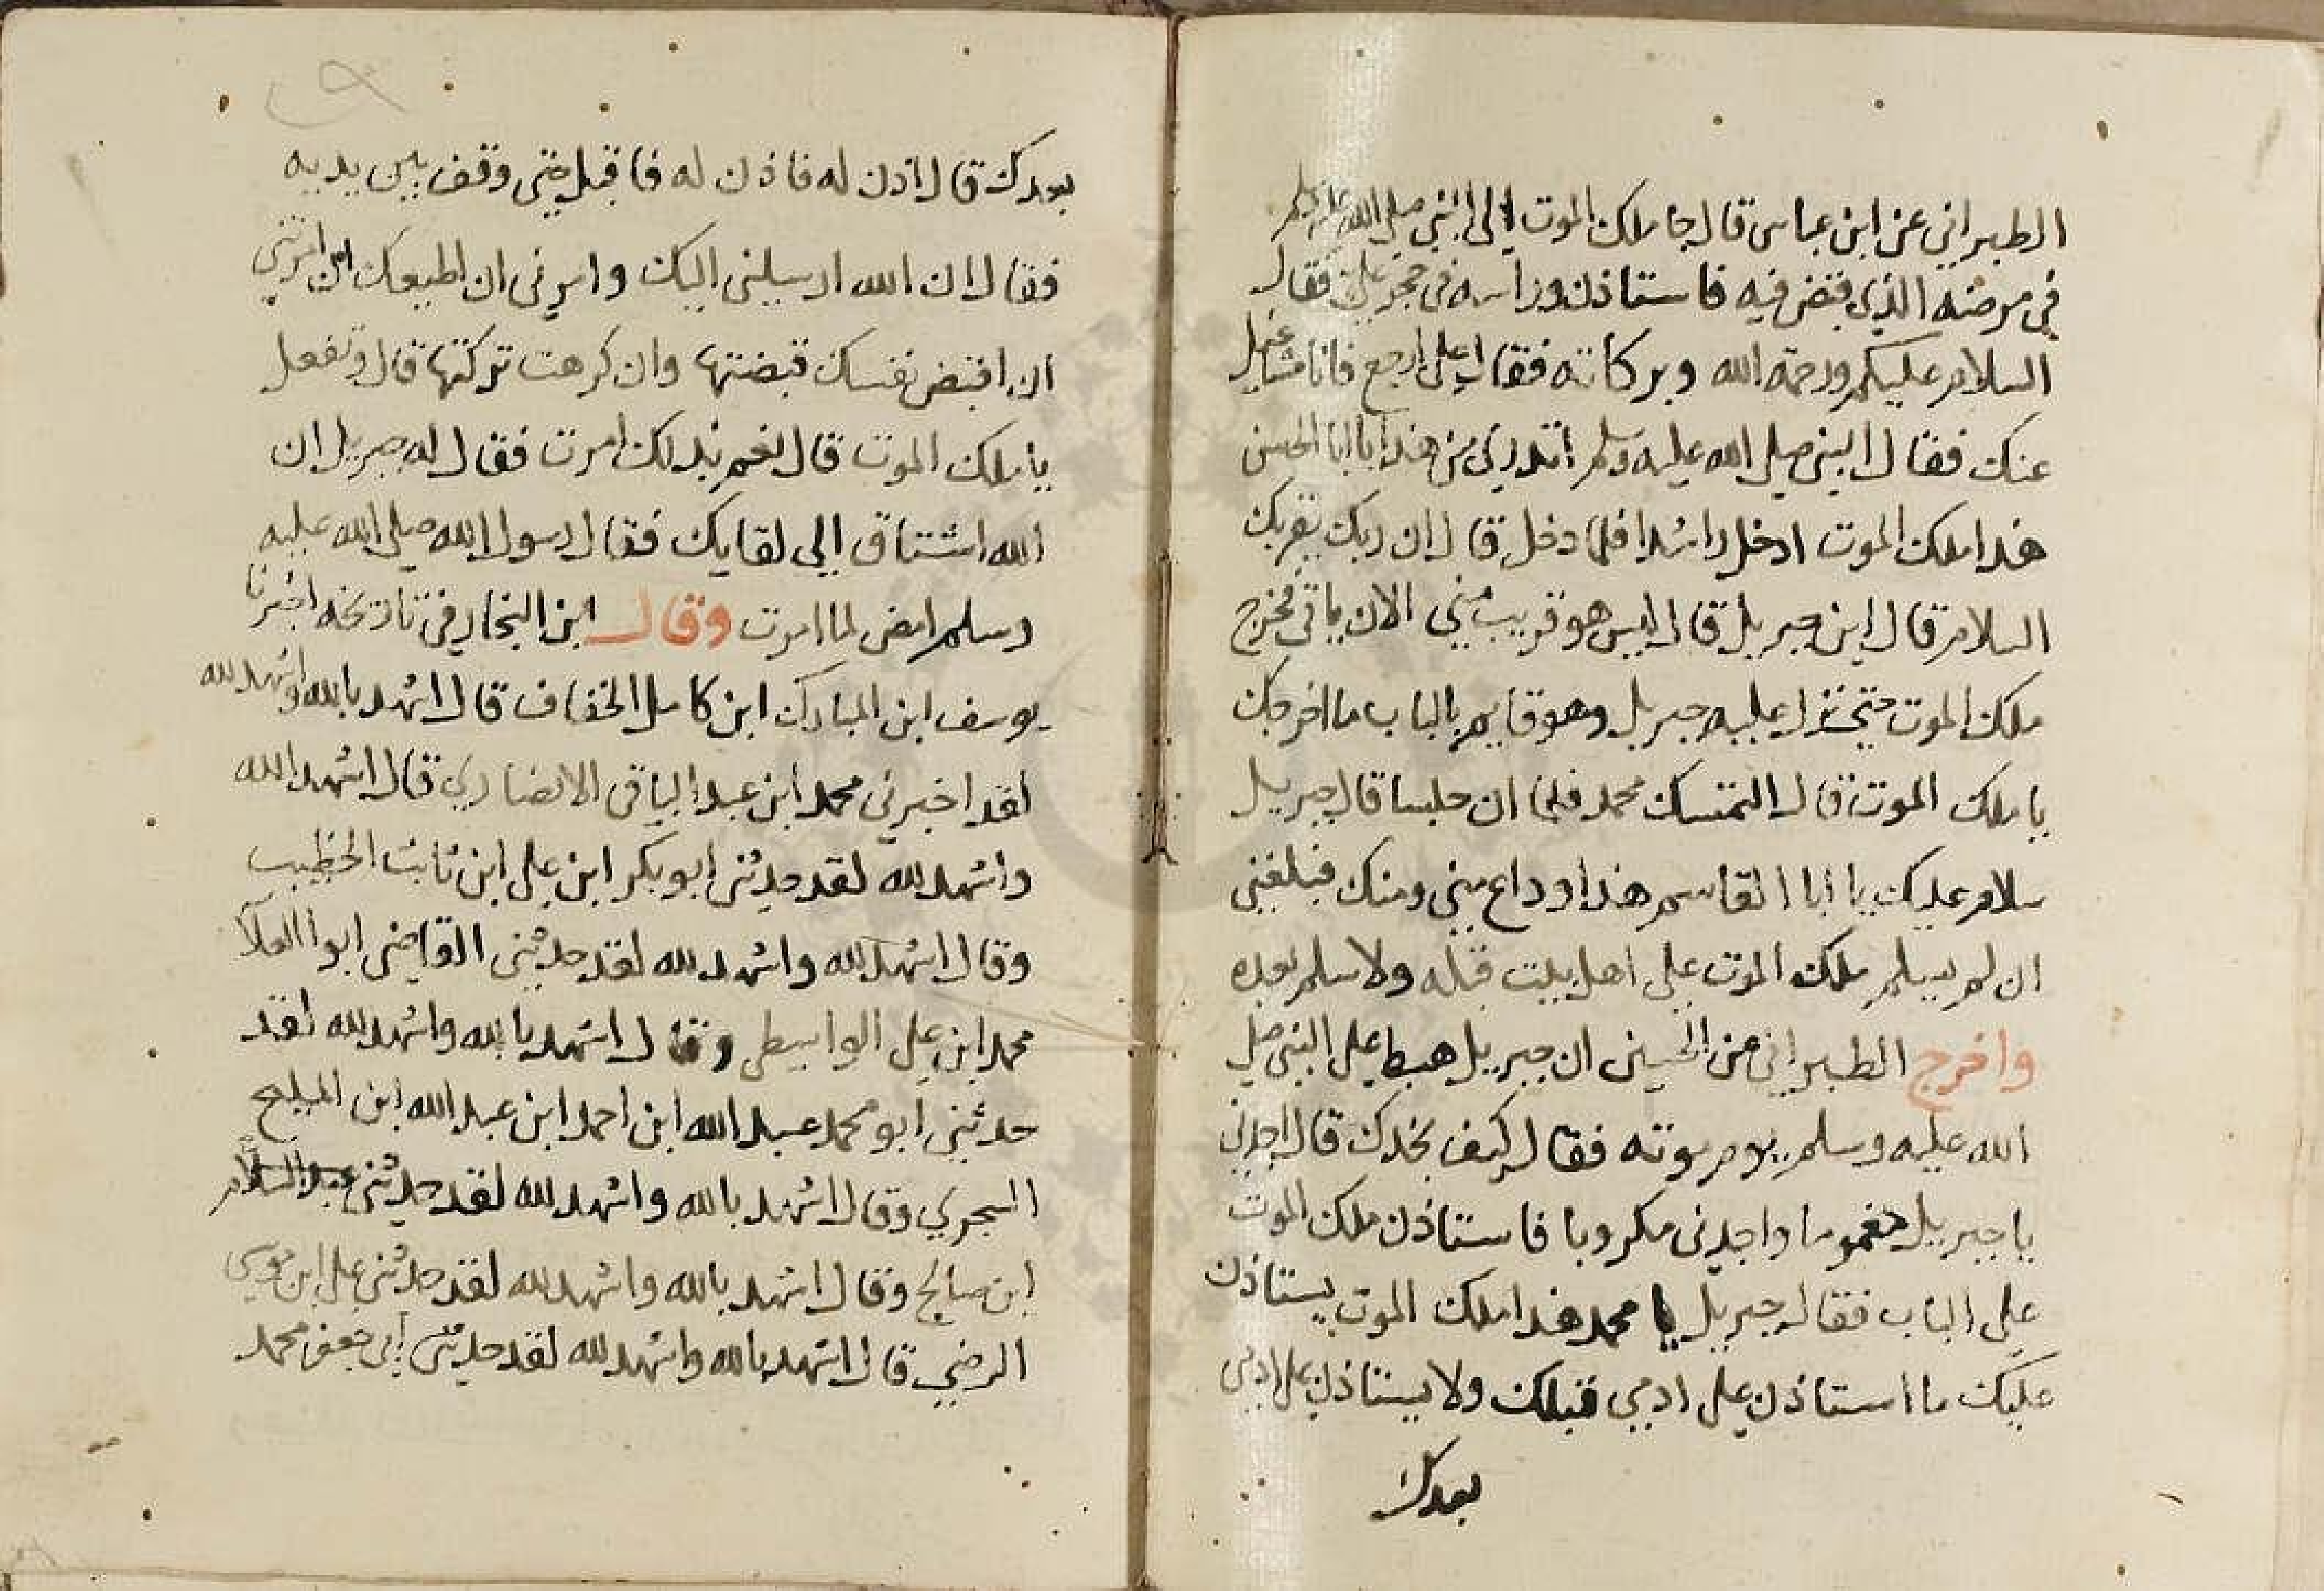 الطبراني عن ابن عباس قال جا ملك الموت الى النبي صلى الله عليه وسلم
في مرضه الذي قبض فيه فاستاذن وراسه في حجر علي فقال
السلام عليكم ورحمة الله وبركاته فقال علي ارجع فانا مشاغيل
عنك فقال النبي صلى الله عليه وسلم اتدري من هذا يا ابا الحسن
هذا ملك الموت ادخل راشدا فلما دخل قال ان ربك يقريك
السلام قال اين جبريل قال ليس هو قريب مني الان ياتي فخرج
ملك الموت حتى نزل عليه جبريل وهو قايم بالباب ما اخرجك
يا ملك الموت قال التمسك محمد فلما ان جلسا قال جبريل
سلام عليك يا ابا القاسم هذا وداع مني ومنك فبلغني
ان لم يسلم ملك الموت على اهل بيت قبله ولا سلم بعده
واخرج الطبراني عن الحسين ان جبريل هبط على النبي صلى
الله عليه وسلم يوم موته فقال كيف تجدك قال اجدني
يا جبريل مغموما واجدني مكروبا فاستاذن ملك الموت
على الباب فقال جبريل يا محمد هذا ملك الموت يستاذن
عليك ما استاذن على ادمي قبلك ولا يستاذن على ادمي
بعدك
بعدك قال اذن له فاذن له فاقبل حتى وقف بين يديه
فقال ان الله ارسلني اليك وامرني ان اطيعك ان امرتني
ان اقبض نفسك قبضتها وان كرهت تركتها قال وتفعل
يا ملك الموت قال نعم بذلك امرت فقال له جبريل ان
الله اشتاق الي لقايك فقال رسول الله صلى الله عليه
وسلم امض لما امرت وقال ابن النجار في تاريخه اخبرنا
يوسف ابن المبارك ابن كامل الخفاف قال اشهد بالله واشهد لله
لقد اخبرني محمد ابن عبد الباقي الانصاري قال اشهد الله
واشهد لله لقد حدثني ابو بكر ابن علي ابن ثابت الخطيب
وقال اشهد لله واشهد لله لقد حدثني القاضي ابوا العلآ
محمد ابن علي الواسطي وقال اشهد بالله واشهد لله لقد
حدثني ابو محمد عبد الله ابن احمد ابن عبد الله ابن المليح
السجزي وقال اشهد بالله واشهد لله لقد حدثني عبد السلام
ابن صالح وقال اشهد بالله واشهد لله لقد حدثني علي ابن موسى
الرضي قال اشهد بالله واشهد لله لقد حدثني ابي جعفر محمد